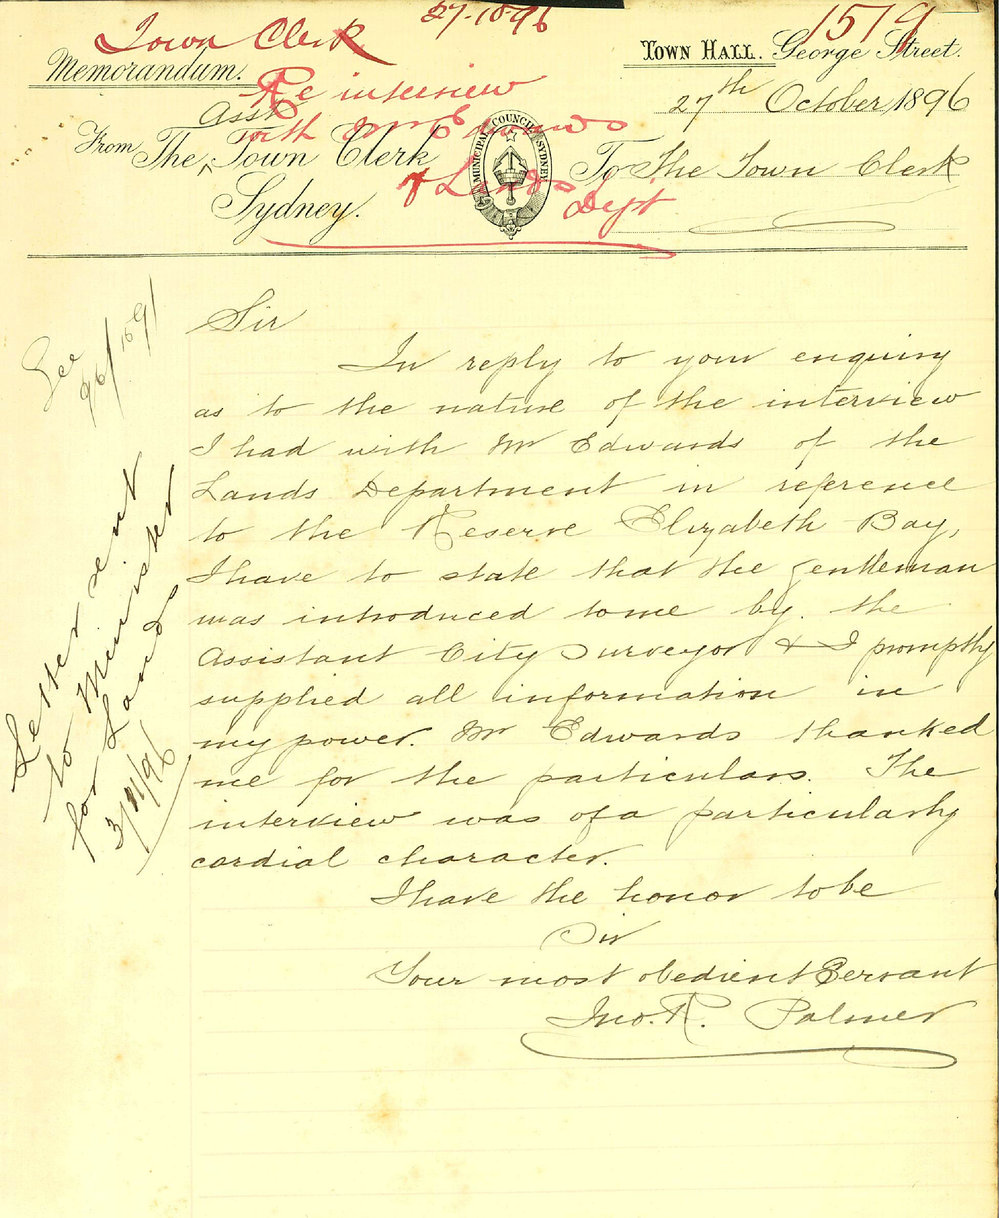 Town Clerk 27-10-96
1519
Memorandum.
TOWN HALL. George Street.
Re interview
with Mr Edwards
of Lands
Dept
27th October, 1896
From The Asst Town Clerk
Sydney.
MUNICIPAL COUNCIL SYDNEY
To The Town Clerk
See
96/1591
Letter sent
to Minister
for Lands
3/11/96
Sir
In reply to your enquiry
as to the nature of the interview
I had with Mr Edwards of the
Lands Department in reference
to the Reserve Elizabeth Bay,
I have to state that the gentleman
was introduced to me by the
Assistant City Surveyor & I promptly
supplied all information in
my power. Mr Edwards thanked
me for the particulars. The
interview was of a particularly
cordial character.
I have the honor to be
Sir
Your most obedient Servant
Jno. R. Palmer